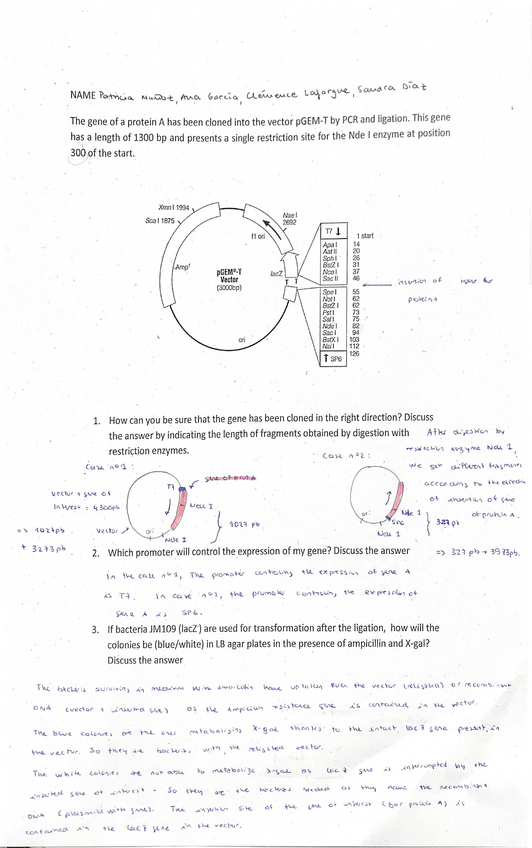 NAME Patricia Muñoz, Ana García, Clémence Lafargue, Sandra Díaz
The gene of a protein A has been cloned into the vector pGEM-T by PCR and ligation. This gene
has a length of 1300 bp and presents a single restriction site for the Nde I enzyme at position
300 of the start.
Xmn I 1994
Sca I 1875
Nae I
2692
f1 ori
Ampʳ
pGEM®-T
Vector
(3000bp)
lacZ
T T
ori
T7 ↓
1 start
Apa I 14
Aat II 20
Sph I 26
BstZ I 31
Nco I 37
Sac II 46
insertion of gene for
protein A
Spe I 55
Not I 62
BstZ I 62
Pst I 73
Sal I 75
Nde I 82
Sac I 94
BstX I 103
Nsi I 112
↑ SP6 126
1. How can you be sure that the gene has been cloned in the right direction? Discuss
the answer by indicating the length of fragments obtained by digestion with
restriction enzymes.
After digestion by
restriction enzyme Nde I,
we get different fragment
according to the
of insertion of gene
of protein A.
Case nº1:
Vector + gene of
interest = 4300pb
=> 1027pb
+ 3273pb.
vector
T7
Nde I
Nde I
ori
1027 pb.
Case nº2:
ori
Nde I
SP6
Nde I
327 pb
=> 327 pb + 3973pb.
2. Which promoter will control the expression of my gene? Discuss the answer
In the case nº1, the promoter controling the expression of gene A
is T7. In case nº2, the promoter controling the expression of
gene A is SP6.
3. If bacteria JM109 (lacZ⁻) are used for transformation after the ligation, how will the
colonies be (blue/white) in LB agar plates in the presence of ampicillin and X-gal?
Discuss the answer
The bacteria surviving in medium with ampicillin have uptaken even the vector (religated) or recombinant
DNA (vector + gene) as the ampicillin resistance gene is contained in the vector.
The blue colonies are the ones metabolising X-gal thanks to the intact lacZ gene present in
the vector. So they are bacteria with the religated vector.
The white colonies are not able to metabolize x-gal as lacZ gene is interrupted by the
inserted gene of interest. So they are the bacteria needed as they have the recombinant
DNA (plasmid with gene). The insertion site of the gene of interest (for protein A) is
contained in the lacZ gene in the vector.